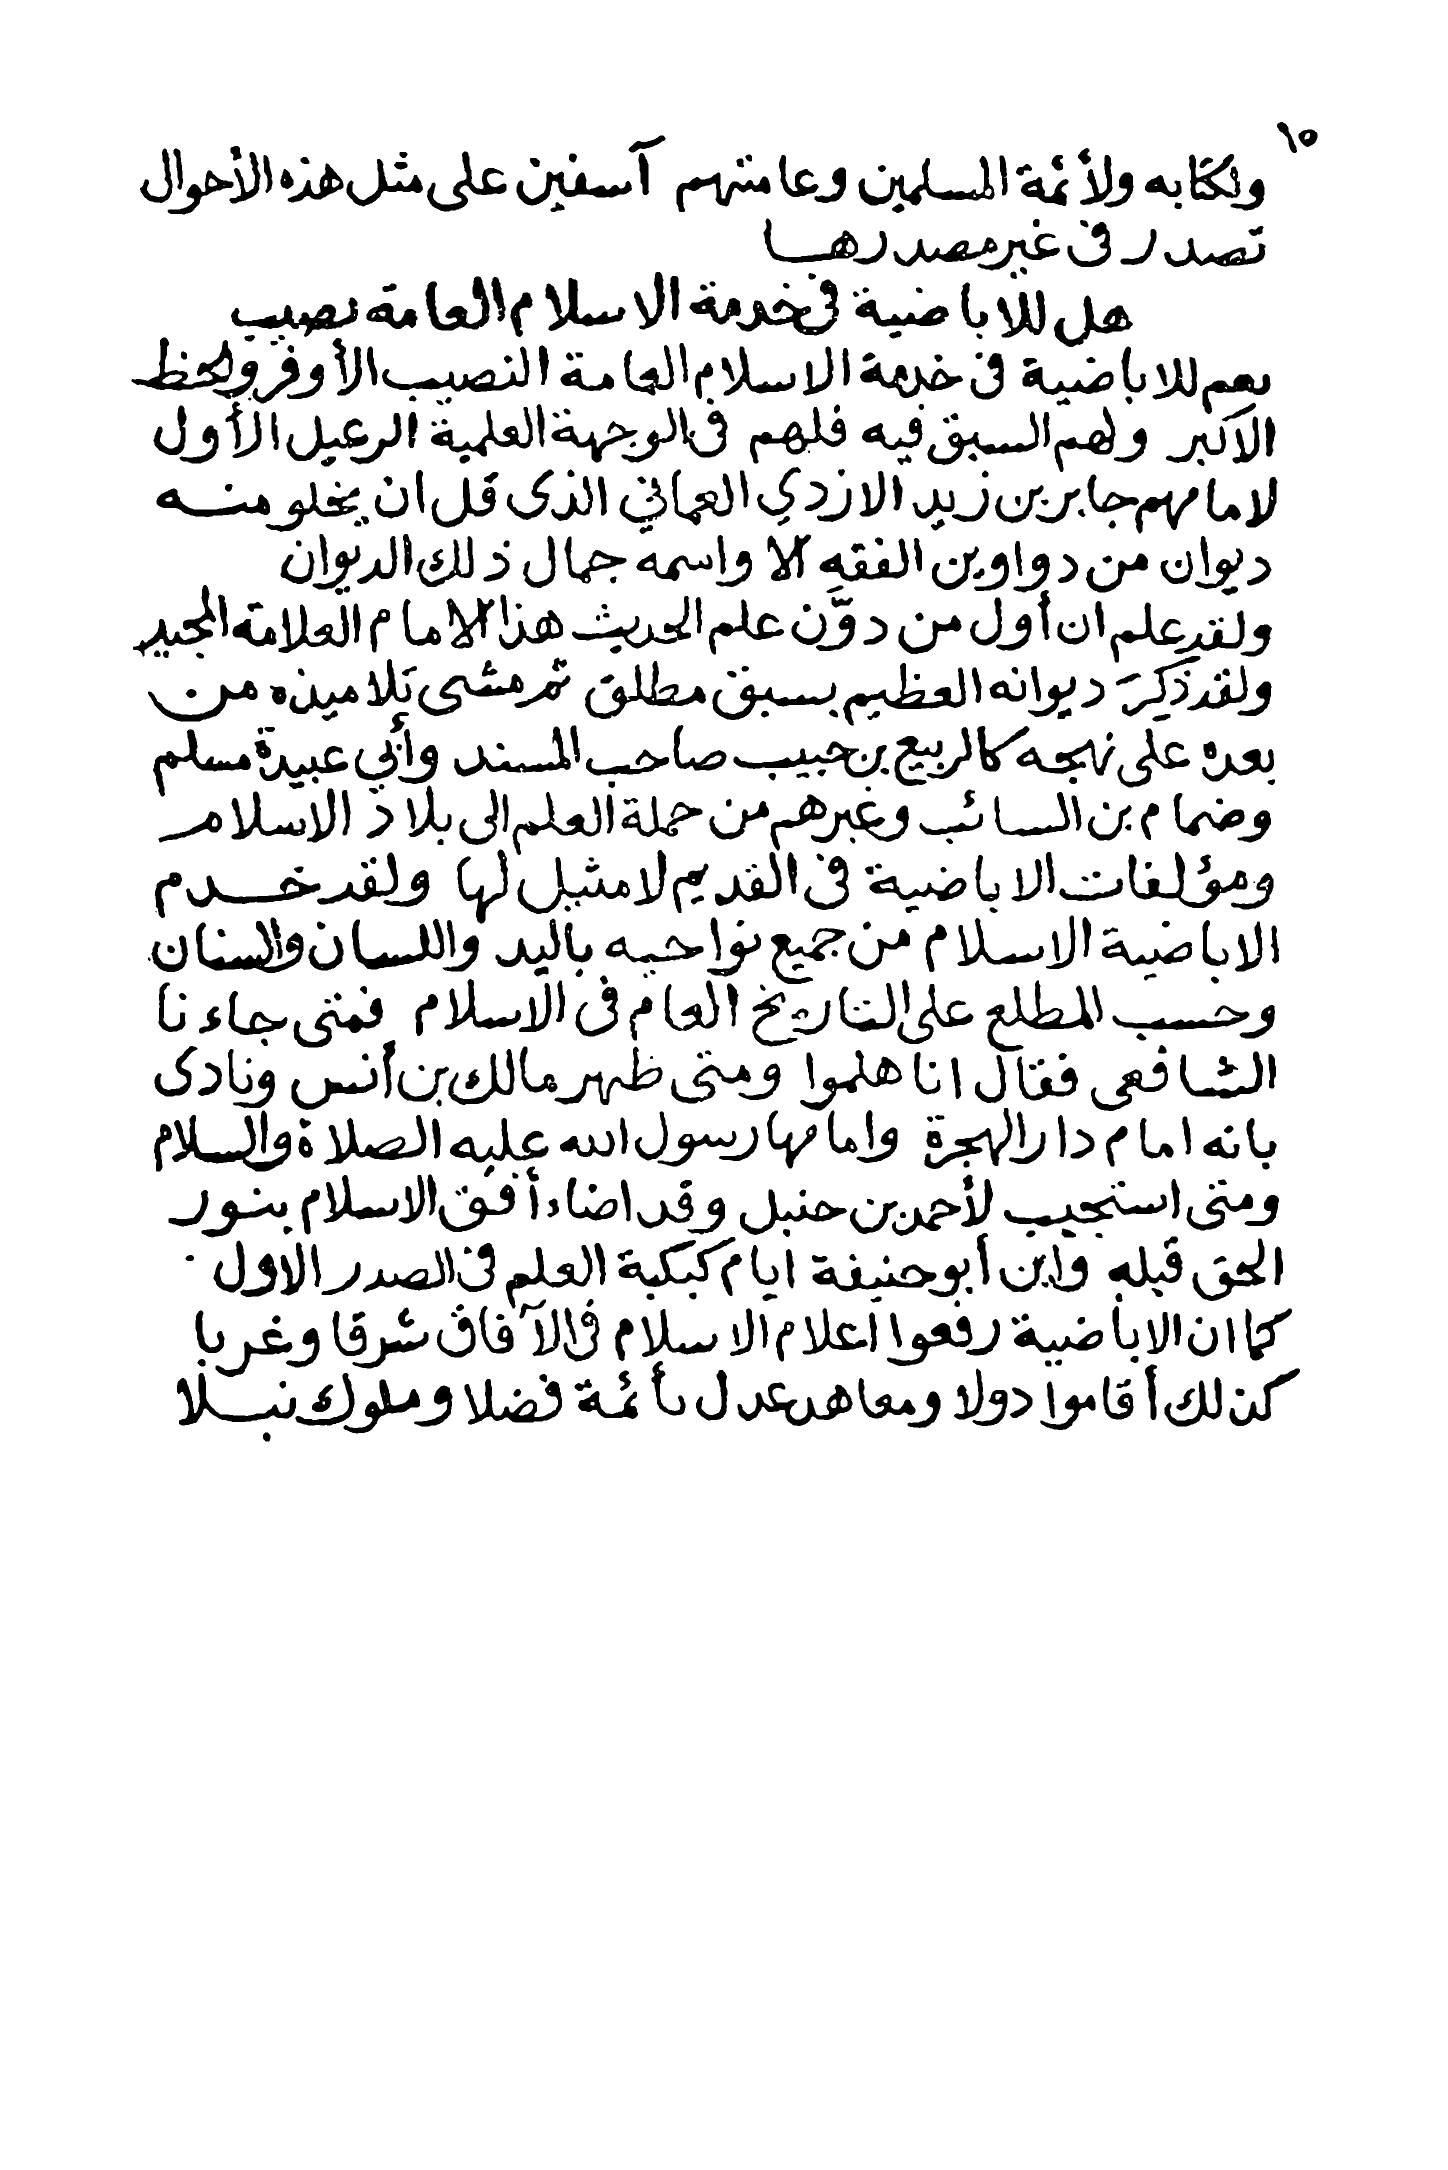 ١٥
ولكتابه ولأئمة المسلمين وعامتهم آسفين على مثل هذه الأحوال
تصدر في غير مصدرها
هل للاباضية في خدمة الاسلام العامة نصيب
نعم للاباضية في خدمة الاسلام العامة النصيب الأوفر والحظ
الاكبر ولهم السبق فيه فلهم في الوجهة العلمية الرعيل الأول
لامامهم جابر بن زيد الازدي العماني الذى قل ان يخلو منه
ديوان من دواوين الفقه الا واسمه جمال ذلك الديوان
ولقد علم ان أول من دوّن علم الحديث هذا الامام العلامة المجيد
ولقد ذكِرَ ديوانه العظيم بسبق مطلق ثم مشى تلاميذه من
بعده على نهجه كالربيع بن حبيب صاحب المسند وأبي عبيدة مسلم
وضمام بن السائب وغيرهم من حملة العلم الى بلاد الاسلام
ومؤلفات الاباضية في القديم لا مثيل لها ولقد خدم
الاباضية الاسلام من جميع نواحيه باليد واللسان والسنان
وحسب المطلع على التاريخ العام في الاسلام فمتى جاءنا
الشافعى فقال انا هلموا ومتى ظهر مالك بن أنس ونادى
بانه امام دار الهجرة وامامها رسول الله عليه الصلاة والسلام
ومتى استجيب لأحمد بن حنبل وقد اضاء أفق الاسلام بنور
الحق قبله واين أبو حنيفة ايام كبكبة العلم في الصدر الاول
كما ان الاباضية رفعوا اعلام الاسلام في الآفاق شرقا وغربا
كذلك أقاموا دولا ومعاهد عدل بأئمة فضلا وملوك نبلا